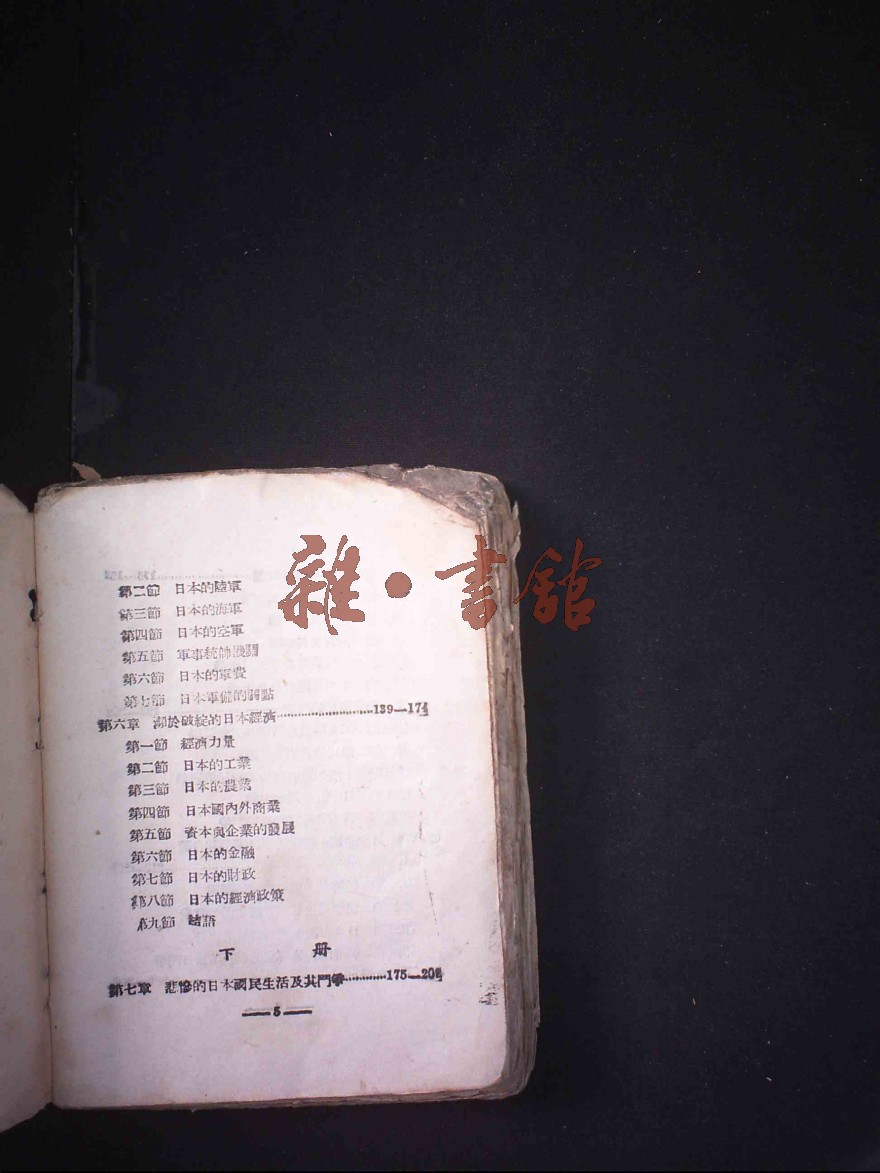 雜·書館
第二節 日本的陸軍
第三節 日本的海軍
第四節 日本的空軍
第五節 軍事統帥機關
第六節 日本的軍費
第七節 日本軍備的弱點
第六章 瀕於破綻的日本經濟…………139—174
第一節 經濟力量
第二節 日本的工業
第三節 日本的農業
第四節 日本國內外商業
第五節 資本與企業的發展
第六節 日本的金融
第七節 日本的財政
第八節 日本的經濟政策
第九節 結語
下 册
第七章 悲慘的日本國民生活及其鬥爭…………175—20
—5—